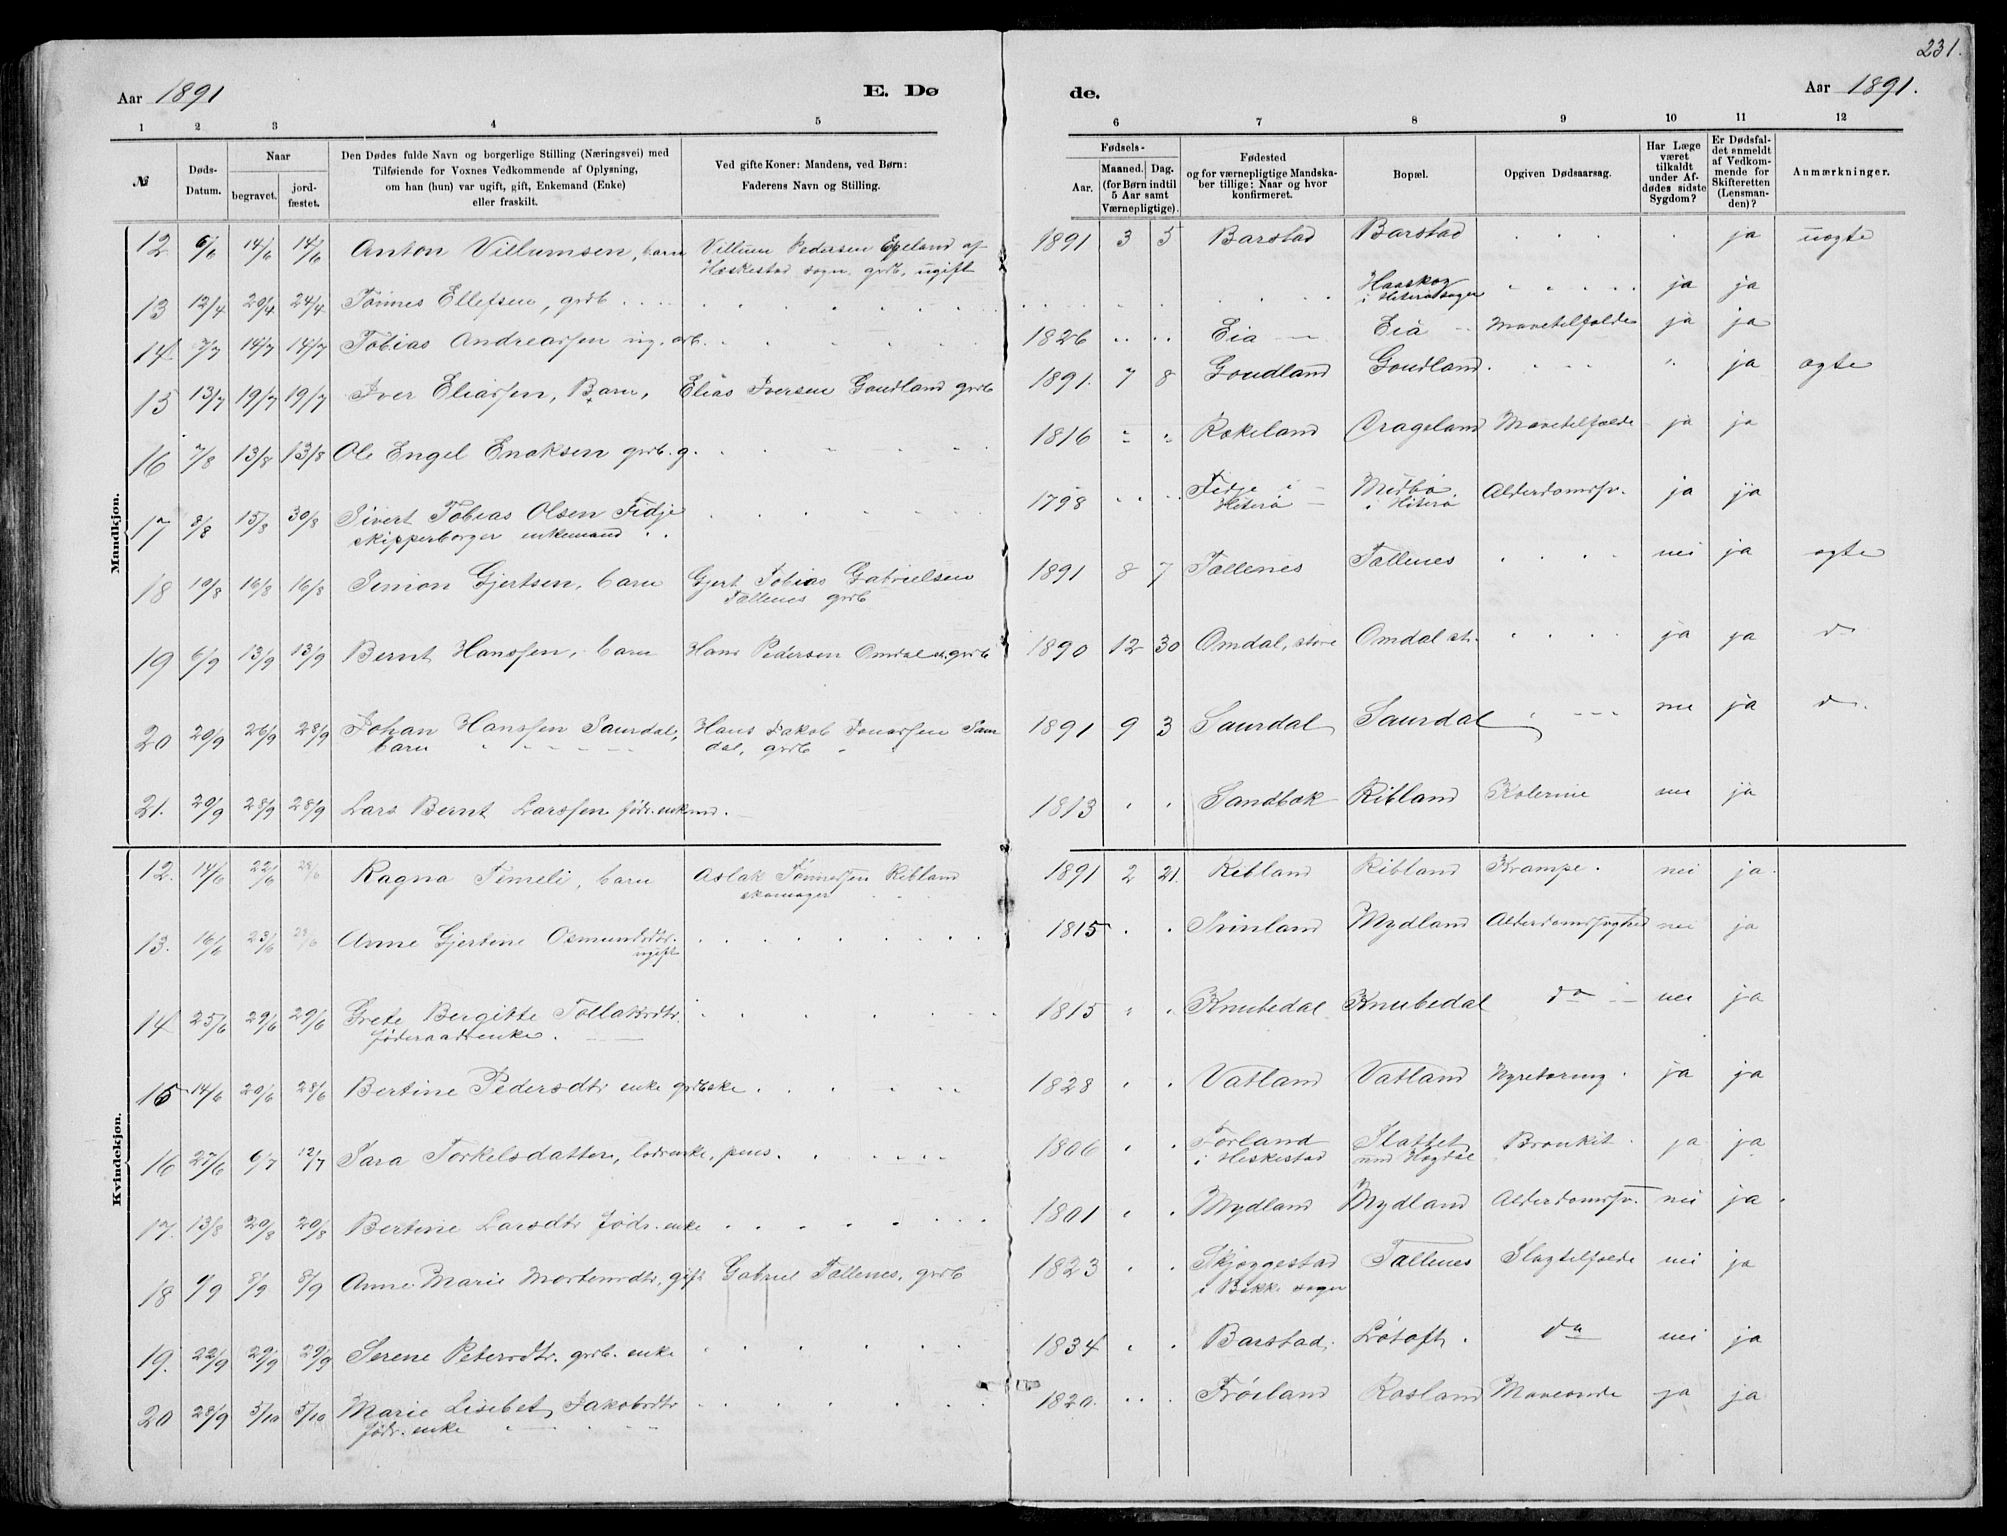 231.
Aar 1891 E. Dø de. Aar 1891.
1 2 3 4 5 6 7 8 9 10 11 12
№ Døds-Datum. Naar begravet. jordfæstet. Den Dødes fulde Navn og borgerlige Stilling (Næringsvei) med Tilføiende for Voxnes Vedkommende af Oplysning, om han (hun) var ugift, gift, Enkemand (Enke) eller fraskilt. Ved gifte Koner: Mandens, ved Børn: Faderens Navn og Stilling. Fødsels- Aar. Maaned. Dag. (for Børn indtil 5 Aar samt Værnepligtige). Fødested og for værnepligtige Mandskaber tillige: Naar og hvor konfirmeret. Bopæl. Opgiven Dødsaarsag. Har Læge været tilkaldt under Afdødes sidste Sygdom? Er Dødsfaldet anmeldt af Vedkommende for Skifteretten (Lensmanden)? Anmærkninger.
Mandkjøn.
12 6/6 14/6 14/6 Anton Villumsen, barn Villum Pedersen Egeland af 1891 3 5 Barstad Barstad ja uegte
Heskestad sogn. grdb, ugift
13 12/4 20/4 24/4 Tönnes Ellefsen, grdb Haaskog ja ja
i Hiterø sogn
14 7/7 14/7 14/7 Tobias Andreassen ug. arb. 1826 Eia Eia Mavetilfælde ja ja
15 13/7 19/7 19/7 Iver Eliassen, Barn, Elias Iversen Goudland grdb 1891. 7 8 Goudland Goudland. ja egte
16 7/8 13/8 13/8 Ole Engel Enoksen grdb. g. 1816 Rekeland Drageland Mavetilfælde ja ja
17 8/8 15/8 30/8 Sivert Tobias Olsen Fidje 1798 Fidje i Midbø Alderdomssv. ja ja
skipperborger enkemand Hiterø i Hiterø
18 10/8 16/8 16/8 Simon Gjertsen, barn Gjert Tobias Gabrielsen 1891 8 7 Tallenes Tallenes nei ja egte
Tallenes grdb
19 6/9 13/9 13/9 Bernt Hanssen, barn Hans Pedersen Omdal st. grdb 1890 12 30 Omdal, store Omdal st. ja ja do
20 20/9 26/9 28/9 Johan Hanssen Saurdal, Hans Jakob Jonassen Saur 1891 9 3 Saurdal Saurdal nei ja do.
barn dal, grdb
21. 20/9 28/9 28/9 Lars Bernt Larssen födr. enkmd. 1813 Sandbæk Ribland Kolerine nei ja
Kvindekjøn.
12. 14/6 22/6 28/6 Ragna Simeli, barn Aslak Tönnessen Ribland 1891 2 21. Ribland Ribland Krampe. nei ja.
skomager
13. 16/6 23/6 28/6 Anne Gjertine Osmundsdtr. 1815 Svinland Mydland Alderdomssvaghed nei ja
ugift
14 25/6 29/6 29/6 Grete Bergitte Tollaksdtr. 1815 Knubedal Knubedal do nei ja
föderaadsenke.
15 14/6 20/6 28/6 Bertine Pedersdtr enke grdbske 1828 Vatland Vatland Nyretæring. ja ja
16 27/6 6/7 12/7 Sara Torkelsdatter, lodsenke, pens. 1806 Förland Slattet Bronkit. ja ja
i Heskestad und Hogdal
17. 13/8 20/8 20/8 Bertine Larsdtr födr. enke 1801 Mydland Mydland Alderdomssv. nei ja
18 1/9 8/9 8/9 Anne Marie Mortensdtr, gift Gabriel Tallenes, grdb 1823 Skjeggestad Tallenes Slagtilfælde nei ja
i Bakke sogn
19. 22/9 29/9 29/9 Serene Petersdtr. grdb. enke 1834 Barstad. Løtoft. do nei ja
20 28/9 5/10 5/10 Marie Lisebet Jakobsdtr 1820. Fröiland Rosland Maveonde ja ja
födr. enke